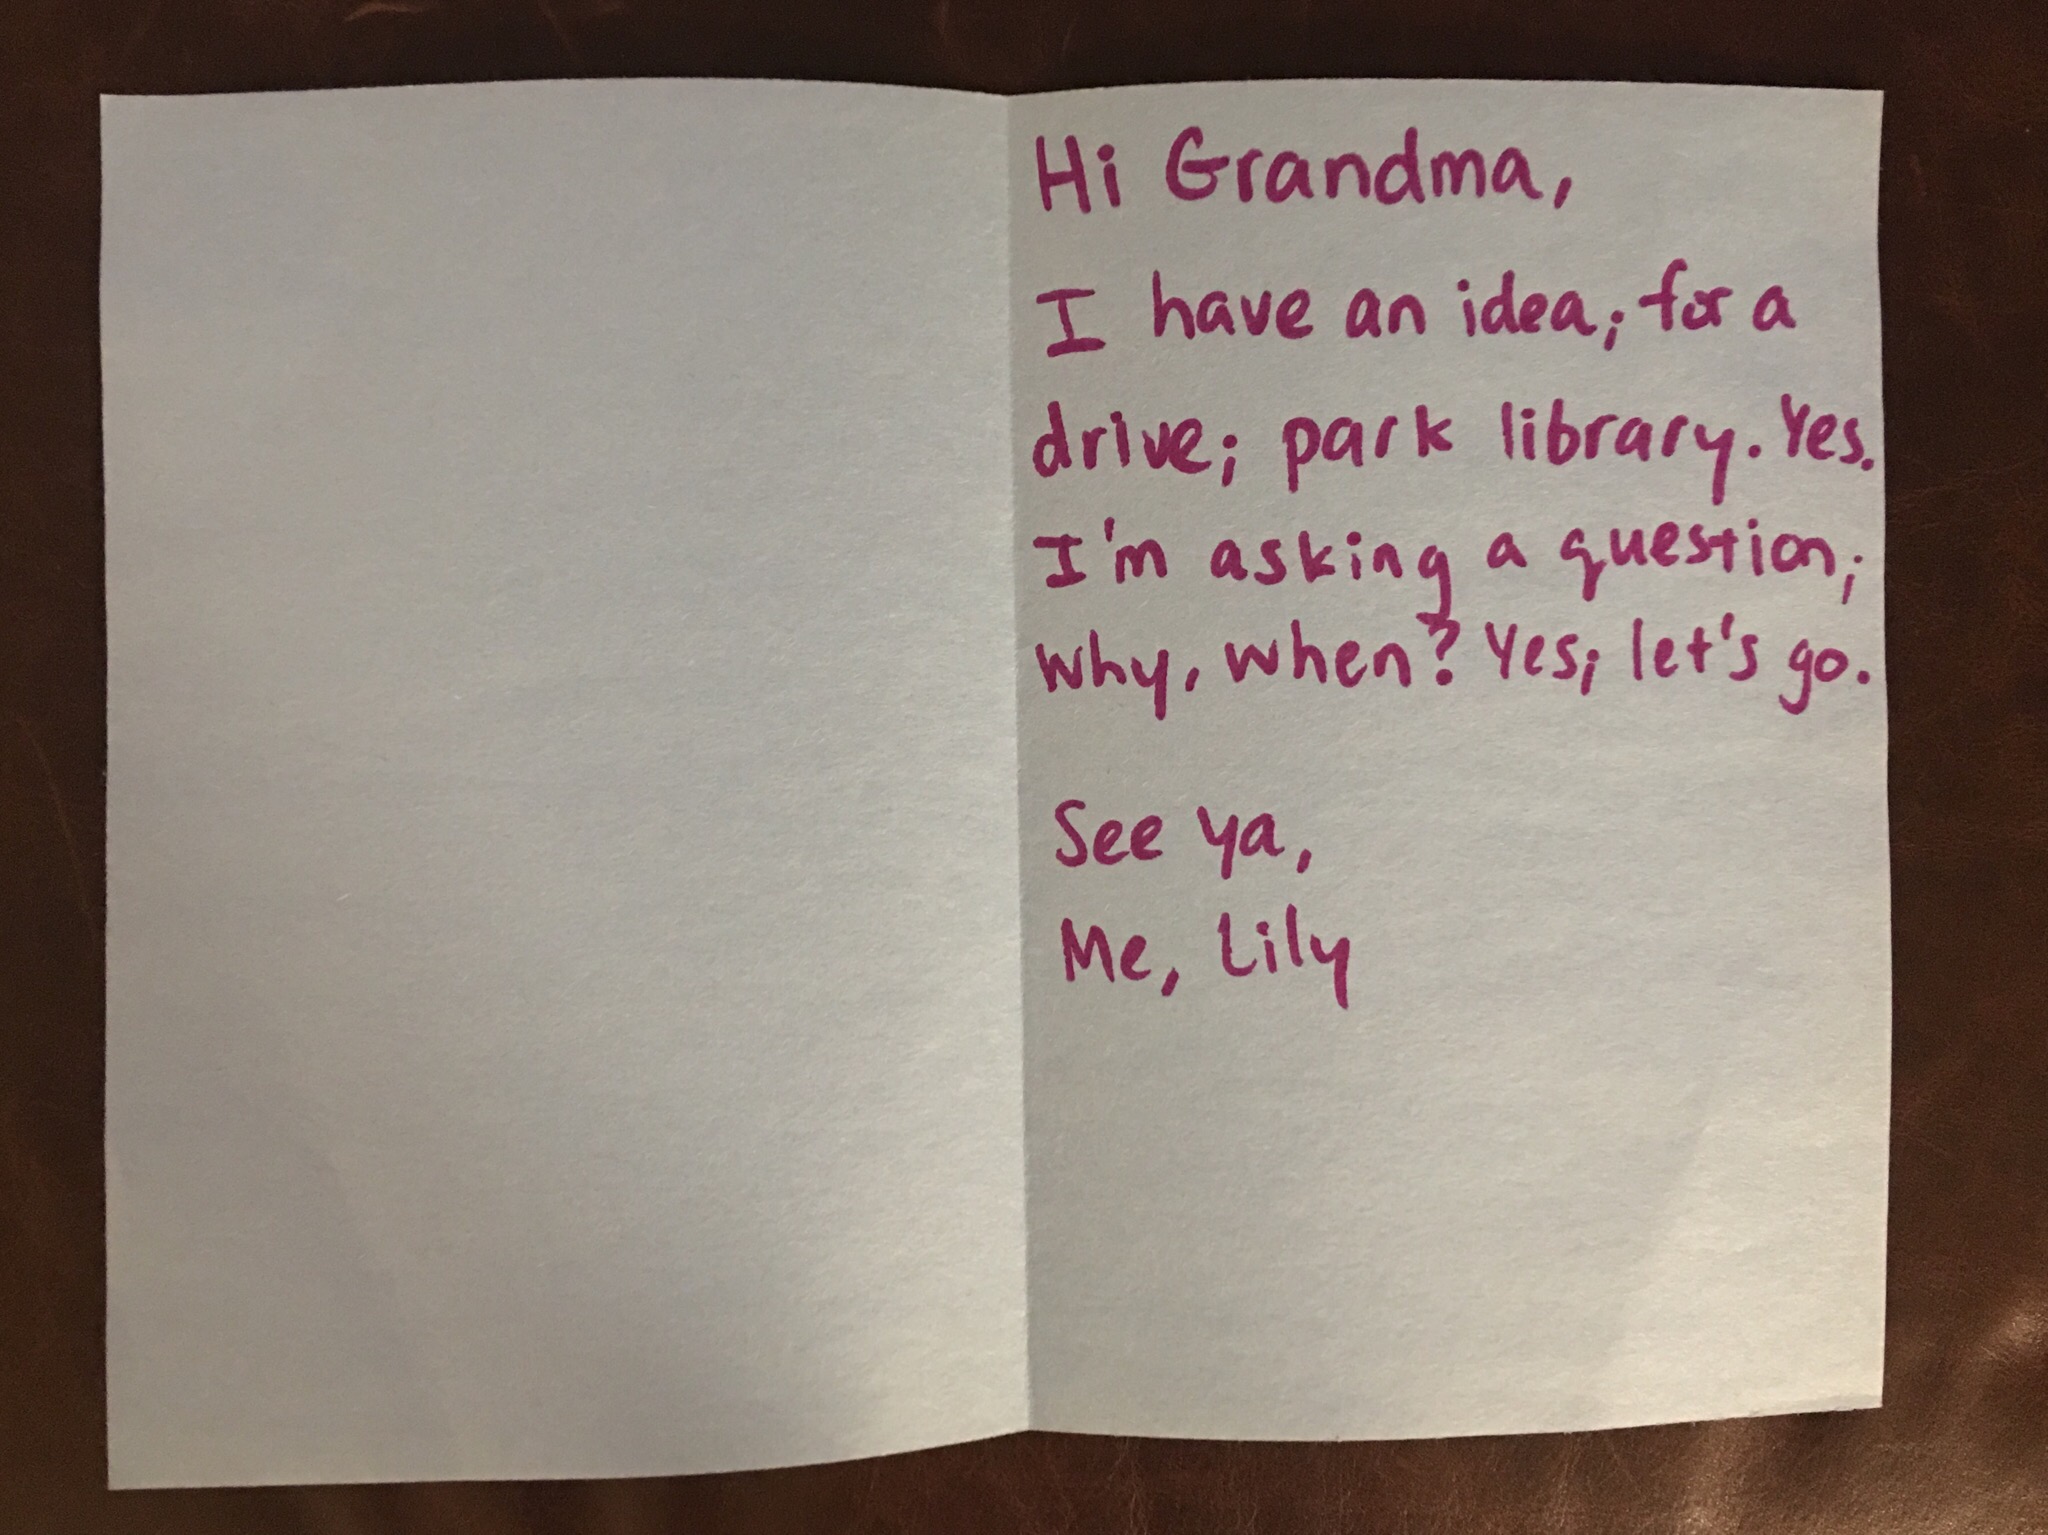 Hi Grandma,
I have an idea; for a
drive; park library. Yes.
I'm asking a question;
why, when? Yes; let's go.
See ya,
Me, Lily